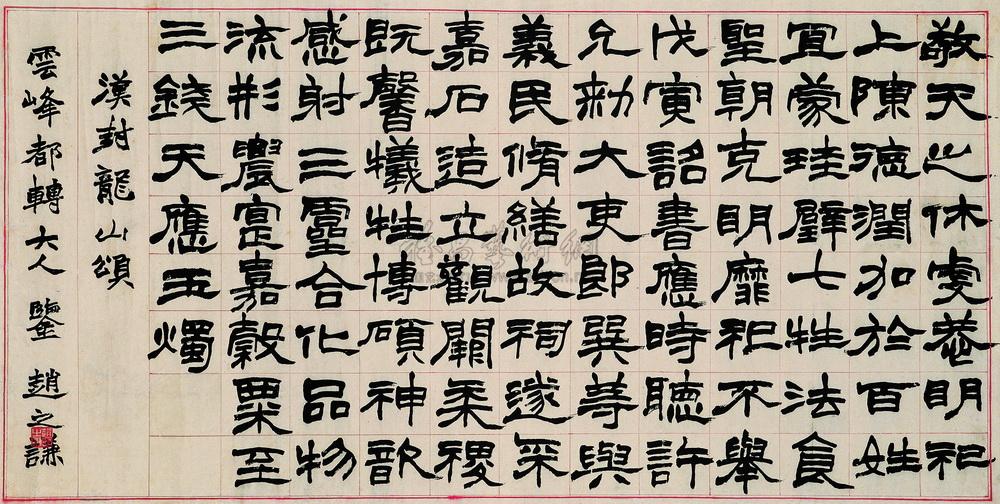 敬天之休虔恭明祀
上陳德潤加於百姓
宜蒙珪璧七牲法食
聖朝克明靡祀不舉
戊寅詔書應時聽許
允勑大吏郎巽等與
義民脩繕故祠遂采
嘉石造立觀闕黍稷
既馨犧牲博碩神歆
感射三靈合化品物
流形農寔嘉穀粟至
三錢天應玉燭
漢封龍山頌
雲峰都轉大人 鑒 趙之謙